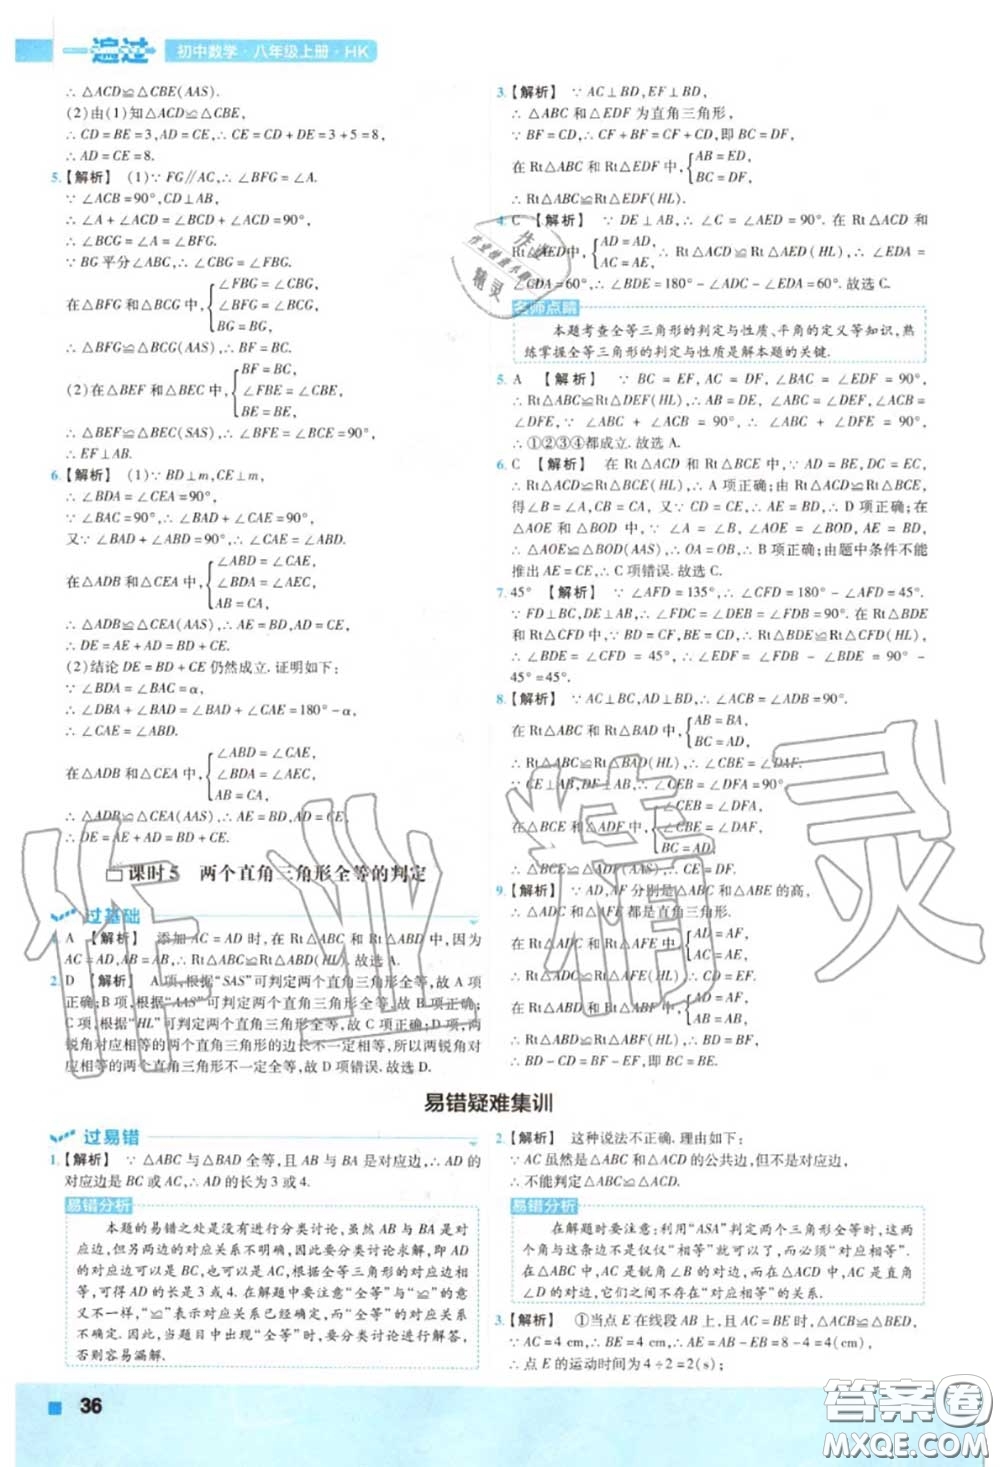 一遍过 初中数学·八年级上册·HK
∴ △ACD≌△CBE(AAS).
(2)由(1)知△ACD≌△CBE,
∴ CD = BE = 3,AD = CE,∴ CE = CD + DE = 3 + 5 = 8,
∴ AD = CE = 8.
5.【解析】 (1)∵ FG∥AC,∴ ∠BFG = ∠A.
∵ ∠ACB = 90°,CD⊥AB,
∴ ∠A + ∠ACD = ∠BCG + ∠ACD = 90°,
∴ ∠BCG = ∠A = ∠BFG.
∵ BG 平分∠ABC,∴ ∠FBG = ∠CBG.
在△BFG 和△BCG 中,
∠FBG = ∠CBG,
∠BFG = ∠BCG,
BG = BG,
∴ △BFG≌△BCG(AAS),∴ BF = BC.
(2)在△BEF 和△BEC 中,
BF = BC,
∠FBE = ∠CBE,
BE = BE,
∴ △BEF≌△BEC(SAS),∴ ∠BFE = ∠BCE = 90°,
∴ EF⊥AB.
6.【解析】 (1)∵ BD⊥m,CE⊥m,
∴ ∠BDA = ∠CEA = 90°.
∵ ∠BAC = 90°,∴ ∠BAD + ∠CAE = 90°.
又∵ ∠BAD + ∠ABD = 90°,∴ ∠CAE = ∠ABD.
在△ADB 和△CEA 中,
∠ABD = ∠CAE,
∠BDA = ∠AEC,
AB = CA,
∴ △ADB≌△CEA(AAS),∴ AE = BD,AD = CE,
∴ DE = AE + AD = BD + CE.
(2)结论 DE = BD + CE 仍然成立. 证明如下:
∵ ∠BDA = ∠BAC = α,
∴ ∠DBA + ∠BAD = ∠BAD + ∠CAE = 180° - α,
∴ ∠CAE = ∠ABD.
在△ADB 和△CEA 中,
∠ABD = ∠CAE,
∠BDA = ∠AEC,
AB = CA,
∴ △ADB≌△CEA(AAS),∴ AE = BD,AD = CE,
∴ DE = AE + AD = BD + CE.
课时5 两个直角三角形全等的判定
过基础
1. A 【解析】 添加 AC = AD 时,在 Rt△ABC 和 Rt△ABD 中,因为
AC = AD,AB = AB,∴ Rt△ABC≌Rt△ABD(HL). 故选 A.
2. D 【解析】 A 项,根据“SAS”可判定两个直角三角形全等,故 A 项
正确;B 项,根据“AAS”可判定两个直角三角形全等,故 B 项正确;
C 项,根据“HL”可判定两个直角三角形全等,故 C 项正确;D 项,两
锐角对应相等的两个直角三角形的边长不一定相等,所以两锐角对
应相等的两个直角三角形不一定全等,故 D 项错误. 故选 D.
3.【解析】 ∵ AC⊥BD,EF⊥BD,
∴ △ABC 和△EDF 为直角三角形.
∵ BF = CD,∴ CF + BF = CF + CD,即 BC = DF,
在 Rt△ABC 和 Rt△EDF 中,
AB = ED,
BC = DF,
∴ Rt△ABC≌Rt△EDF(HL).
4. C 【解析】 ∵ DE⊥AB,∴ ∠C = ∠AED = 90°. 在 Rt△ACD 和
Rt△AED中,
AD = AD,
AC = AE,
∴ Rt△ACD≌Rt△AED(HL),∴ ∠EDA =
∠CDA = 60°,∴ ∠BDE = 180° - ∠ADC - ∠EDA = 60°. 故选 C.
名师点睛
本题考查全等三角形的判定与性质、平角的定义等知识,熟
练掌握全等三角形的判定与性质是解本题的关键.
5. A 【解析】 ∵ BC = EF,AC = DF,∠BAC = ∠EDF = 90°,
∴ Rt△ABC≌Rt△DEF(HL),∴ AB = DE, ∠ABC = ∠DEF,∠ACB =
∠DFE,∵ ∠ABC + ∠ACB = 90°,∴ ∠ABC + ∠DFE = 90°,
∴ ①②③④都成立. 故选 A.
6. C 【解析】 在 Rt△ACD 和 Rt△BCE 中,∵ AD = BE,DC = EC,
∴ Rt△ACD≌Rt△BCE(HL),∴ A 项正确;由 Rt△ACD≌Rt△BCE,
得∠B = ∠A,CB = CA, 又∵ CD = CE,∴ AE = BD,∴ D 项正确;在
△AOE 和△BOD 中,∵ ∠A = ∠B,∠AOE = ∠BOD,AE = BD,
∴ △AOE≌△BOD(AAS),∴ OA = OB,∴ B 项正确;由题中条件不能
推出 AE = CE,∴ C 项错误. 故选 C.
7. 45° 【解析】 ∵ ∠AFD = 135°,∴ ∠CFD = 180° - ∠AFD = 45°.
∵ FD⊥BC,DE⊥AB,∴ ∠FDC = ∠DEB = ∠FDB = 90°. 在 Rt△BDE
和 Rt△CFD 中,∵ BD = CF,BE = CD,∴ Rt△BDE≌Rt△CFD(HL),
∴ ∠BDE = ∠CFD = 45°,∴ ∠EDF = ∠FDB - ∠BDE = 90° -
45° =45°.
8.【解析】 ∵ AC⊥BC,AD⊥BD,∴ ∠ACB = ∠ADB = 90°.
在 Rt△ABC 和 Rt△BAD 中,
AB = BA,
BC = AD,
∴ Rt△ABC≌Rt△BAD(HL),∴ ∠CBE = ∠DAF.
∵ CE⊥AB,DF⊥AB,∴ ∠CEB = ∠DFA = 90°.
在△BCE 和△ADF 中,
∠CEB = ∠DFA,
∠CBE = ∠DAF,
BC = AD,
∴ △BCE≌△ADF(AAS),∴ CE = DF.
9.【解析】 ∵ AD,AF 分别是△ABC 和△ABE 的高,
∴ △ADC 和△AFE 都是直角三角形.
在 Rt△ADC 和 Rt△AFE 中,
AD = AF,
AC = AE,
∴ Rt△ADC≌Rt△AFE(HL),∴ CD = EF.
在 Rt△ABD 和 Rt△ABF 中,
AD = AF,
AB = AB,
∴ Rt△ABD≌Rt△ABF(HL),∴ BD = BF,
∴ BD - CD = BF - EF,即 BC = BE.
易错疑难集训
过易错
1.【解析】 ∵ △ABC 与△BAD 全等,且 AB 与 BA 是对应边,∴ AD 的
对应边是 BC 或 AC,∴ AD 的长为 3 或 4.
易错分析
本题的易错之处是没有进行分类讨论,虽然 AB 与 BA 是对
应边,但另两边的对应关系不明确,因此要分类讨论求解,即 AD
的对应边可以是 BC,也可以是 AC,根据全等三角形的对应边相
等,可得 AD 的长是 3 或 4. 在解题中要注意“全等”与“≌”的意
义不一样,“≌”表示对应关系已经确定,而“全等”的对应关系
不确定. 因此,当题目中出现“全等”时,要分类讨论进行解答,
否则容易漏解.
2.【解析】 这种说法不正确. 理由如下:
∵ AC 虽然是△ABC 与△ACD 的公共边,但不是对应边,
∴ 不能判定△ABC≌△ACD.
易错分析
在解题时要注意:利用“ASA”判定两个三角形全等时,这两
个角与这条边不是仅仅“相等”就可以了,而必须“对应相等”.
在△ABC 中,AC 是锐角∠B 的对边,而在△ACD 中,AC 是直角
∠D 的对边,它们之间不存在“对应相等”的关系.
3.【解析】 ①当点 E 在线段 AB 上,且△ACB≌△BED,
∵ AC = 4 cm,∴ BE = 4 cm,∴ AE = AB - EB = 8 - 4 = 4(cm),
∴ 点 E 的运动时间为 4 ÷ 2 = 2(s);
36
作业精灵
答案圈
MXQE.COM